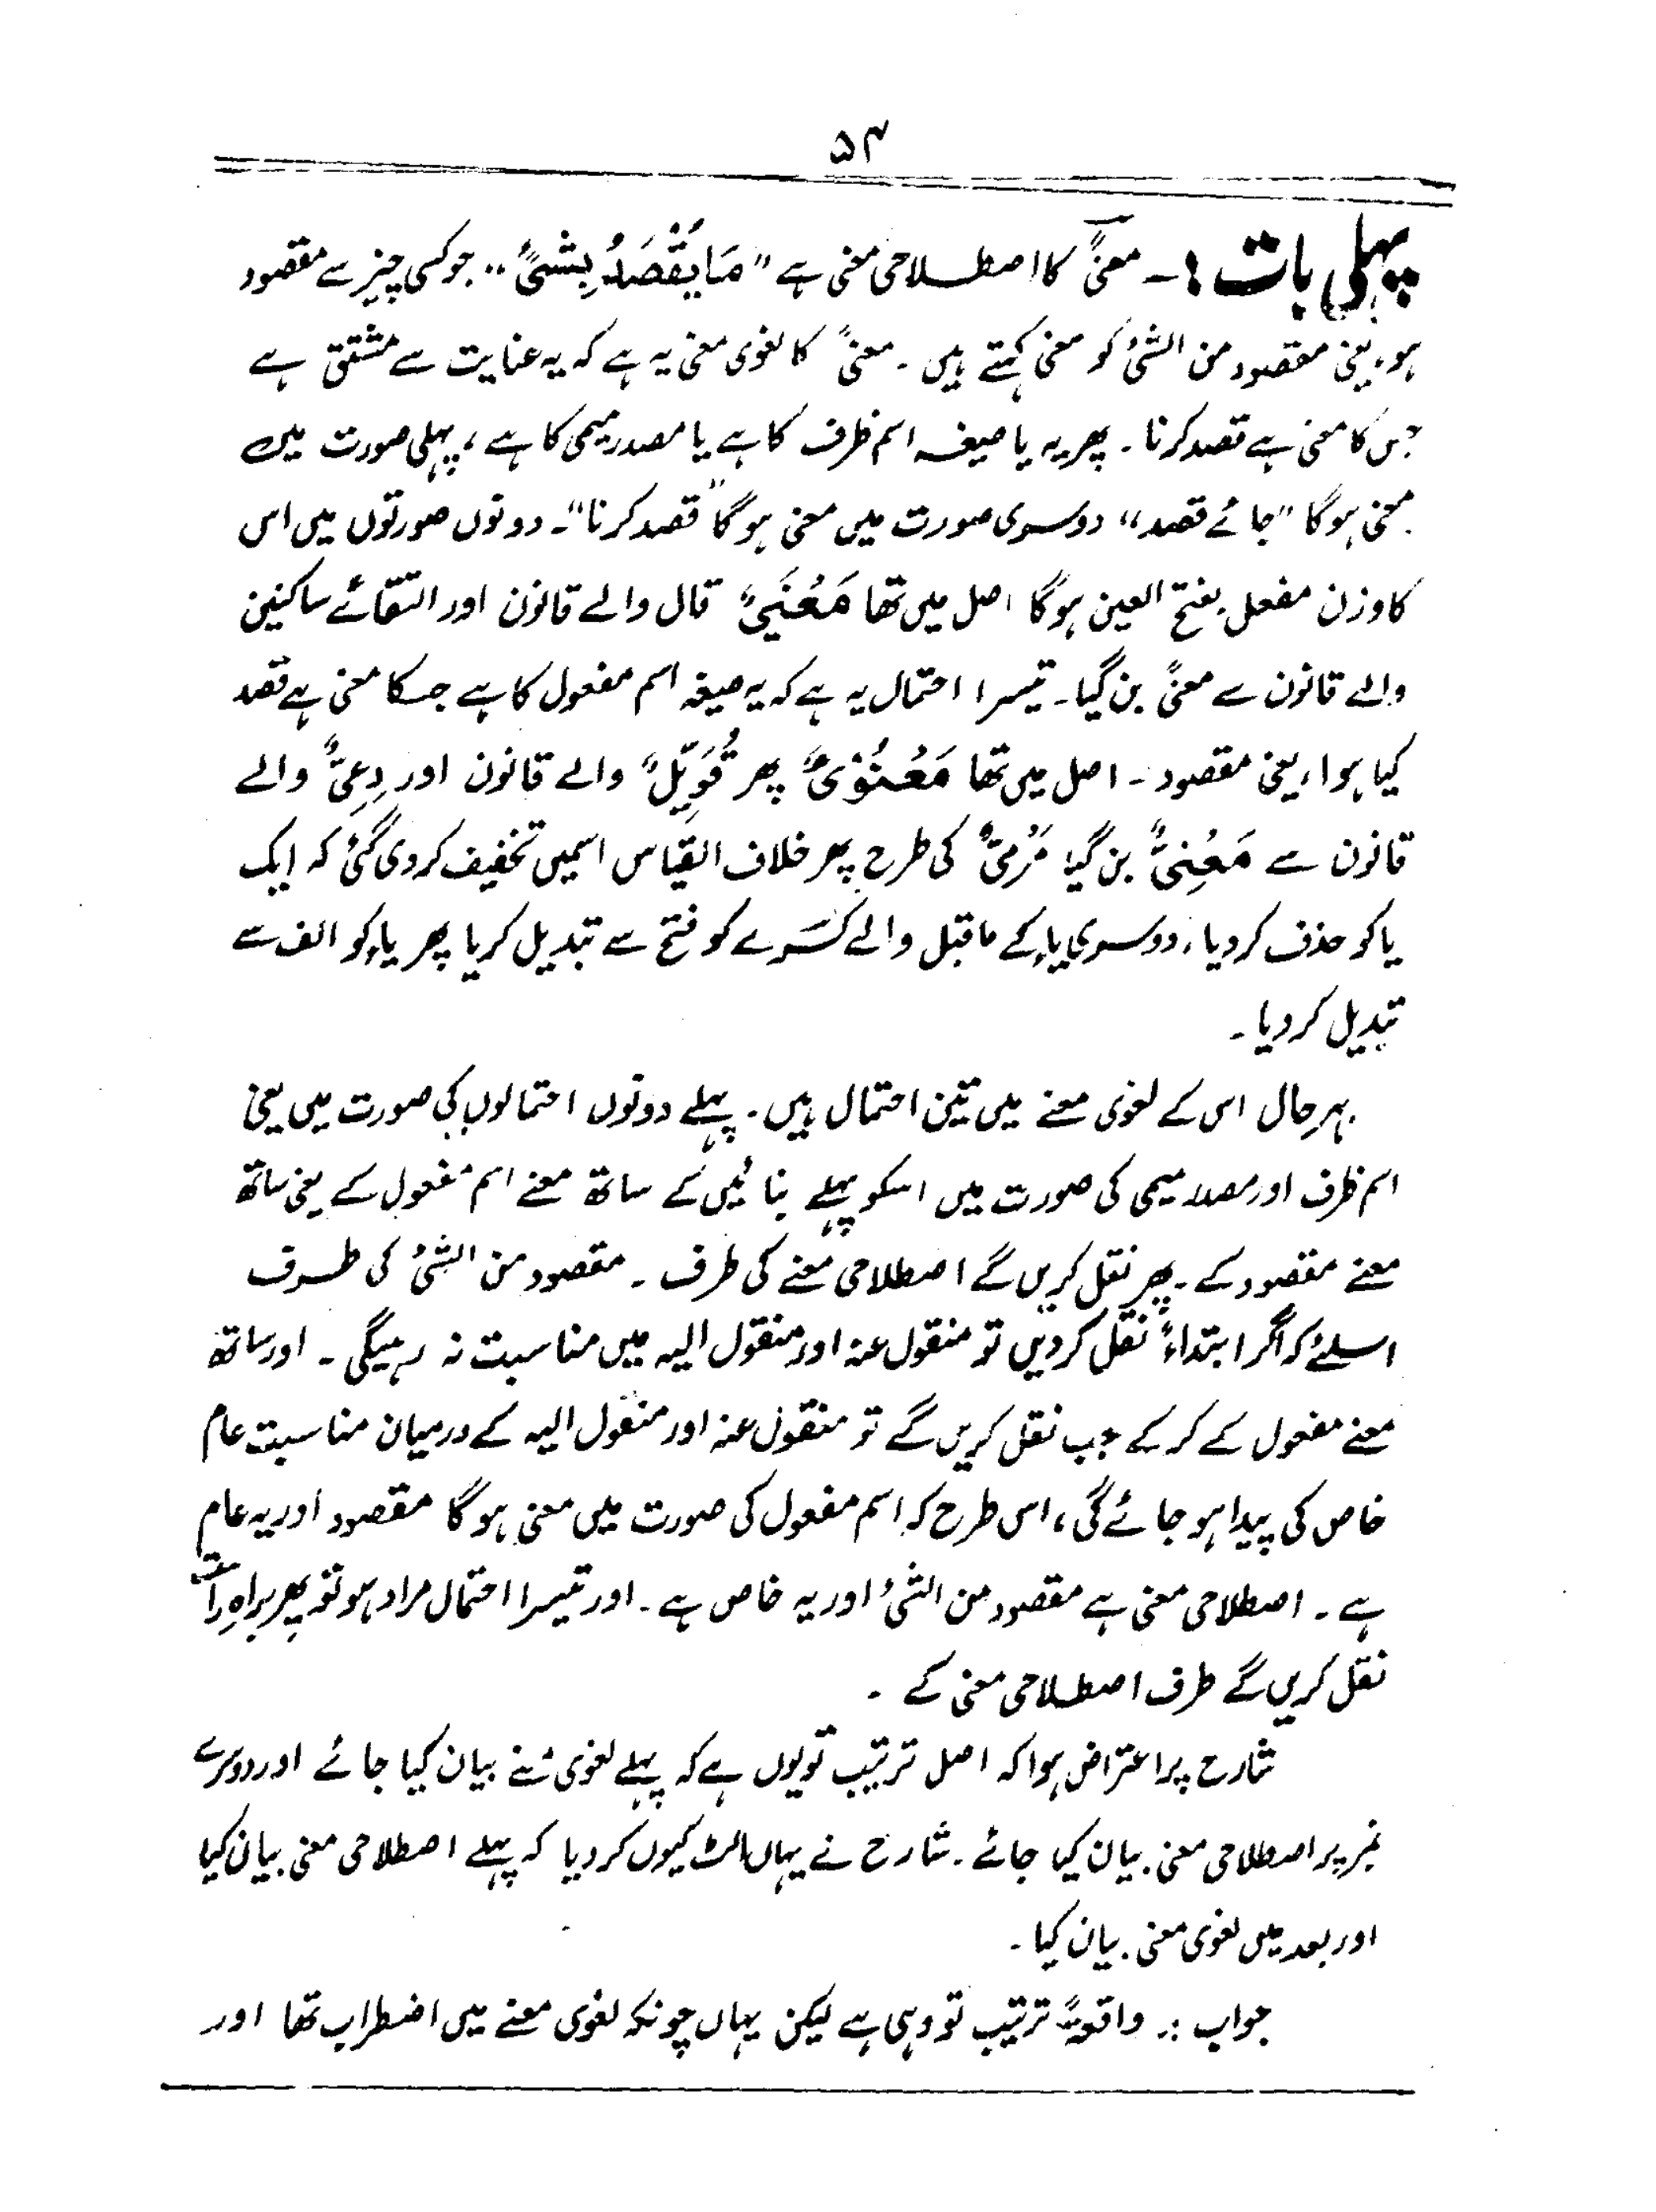 ۵۴
پہلی بات :۔ معنیً کا اصطلاحی معنی ہے "مَا یُقْصَدُ بِشَیْءٍ" جو کسی چیز سے مقصود
ہو، یعنی مقصود من الشئ کو معنی کہتے ہیں ۔ معنیً کا لغوی معنی یہ ہے کہ یہ عنایت سے مشتق ہے
جس کا معنی ہے قصد کرنا ۔ پھر یہ یا صیغہ اسم ظرف کا ہے یا مصدر میمی کا ہے ، پہلی صورت میں
معنی ہوگا "جائے قصد" دوسری صورت میں معنی ہوگا "قصد کرنا"۔ دونوں صورتوں میں اس
کا وزن مفعل بفتح العین ہوگا اصل میں تھا مَعْنَیٌ قال والے قانون اور التقائے ساکنین
والے قانون سے معنیً بن گیا ۔ تیسرا احتمال یہ ہے کہ یہ صیغہ اسم مفعول کا ہے جسکا معنی ہے قصد
کیا ہوا، یعنی مقصود ۔ اصل میں تھا مَعْنُوْیٌ پھر قُوَیِّلٌ والے قانون اور دِعِیٌّ والے
قانون سے مَعْنِیٌّ بن گیا مَرْمِیٌّ کی طرح پھر خلاف القیاس اسمیں تخفیف کر دی گئی کہ ایک
یا کو حذف کر دیا، دوسری یاء کے ماقبل والے کسَرے کو فتح سے تبدیل کریا پھر یاء کو الف سے
تبدیل کر دیا ۔
بہرحال اس کے لغوی معنے میں تین احتمال ہیں ۔ پہلے دونوں احتمالوں کی صورت میں یعنی
اسم ظرف اور مصدر میمی کی صورت میں اسکو پہلے بنائیں گے ساتھ معنے اسم مفعول کے یعنی ساتھ
معنے مقصود کے ۔ پھر نقل کریں گے اصطلاحی معنے کی طرف ۔ مقصود من الشئ کی طرف
اسلئے کہ اگر ابتداءً نقل کر دیں تو منقول عنہ اور منقول الیہ میں مناسبت نہ رہیگی ۔ اور ساتھ
معنے مفعول کے کر کے جب نقل کریں گے تو منقول عنہ اور منقول الیہ کے درمیان مناسبت عام
خاص کی پیدا ہو جائے گی ، اس طرح کہ اسم مفعول کی صورت میں معنی ہوگا مقصود اور یہ عام
ہے ۔ اصطلاحی معنی ہے مقصود من الشئ اور یہ خاص ہے ۔ اور تیسرا احتمال مراد ہو تو پھر براہِ راست
نقل کریں گے طرف اصطلاحی معنی کے ۔
شارح پر اعتراض ہوا کہ اصل ترتیب تو یوں ہے کہ پہلے لغوی معنے بیان کیا جائے اور دوسرے
نمبر پر اصطلاحی معنی بیان کیا جائے ۔ شارح نے یہاں الٹ کیوں کر دیا کہ پہلے اصطلاحی معنی بیان کیا
اور بعد میں لغوی معنی بیان کیا ۔
جواب :۔ واقعۃً ترتیب تو وہی ہے لیکن یہاں چونکہ لغوی معنے میں اضطراب تھا اور